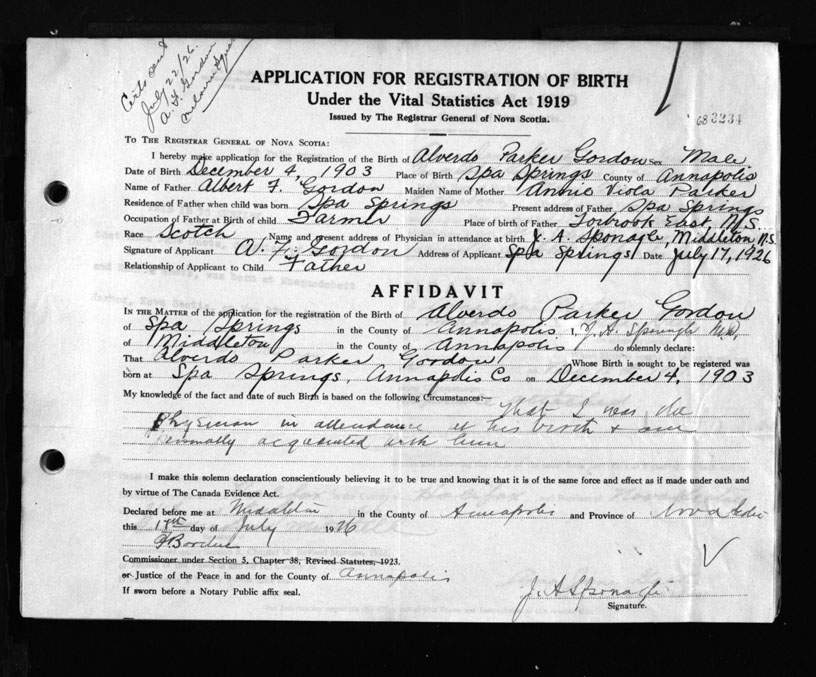 Certs sent
July 22/26.
A. F. Gordon
APPLICATION FOR REGISTRATION OF BIRTH
Under the Vital Statistics Act 1919
Issued by The Registrar General of Nova Scotia.
GB 3234
TO THE REGISTRAR GENERAL OF NOVA SCOTIA:
I hereby make application for the Registration of the Birth of Alverdo Parker Gordon Sex Male
Date of Birth December 4, 1903 Place of Birth Spa Springs County of Annapolis
Name of Father Albert F. Gordon Maiden Name of Mother Annie Viola Parker
Residence of Father when child was born Spa Springs Present address of Father Spa Springs
Occupation of Father at Birth of child Farmer Place of birth of Father Torbrook East N.S.
Race Scotch Name and present address of Physician in attendance at birth J. A. Sponagle, Middleton N.S.
Signature of Applicant A. F. Gordon Address of Applicant Spa Springs Date July 17, 1926
Relationship of Applicant to Child Father
AFFIDAVIT
IN THE MATTER of the application for the registration of the Birth of Alverdo Parker Gordon
of Spa Springs in the County of Annapolis I, J. A. Sponagle M.D.
of Middleton in the County of Annapolis do solemnly declare:
That Alverdo Parker Gordon Whose Birth is sought to be registered was
born at Spa Springs, Annapolis Co on December 4, 1903
My knowledge of the fact and date of such Birth is based on the following Circumstances:— That I was the
Physician in attendance at his birth & am
personally acquainted with him
I make this solemn declaration conscientiously believing it to be true and knowing that it is of the same force and effect as if made under oath and
by virtue of The Canada Evidence Act.
Declared before me at Middleton in the County of Annapolis and Province of Nova Scotia
this 17th day of July 1926
Commissioner under Section 5, Chapter 38, Revised Statutes, 1923.
or Justice of the Peace in and for the County of Annapolis
If sworn before a Notary Public affix seal.
J. A. Sponagle
Signature.